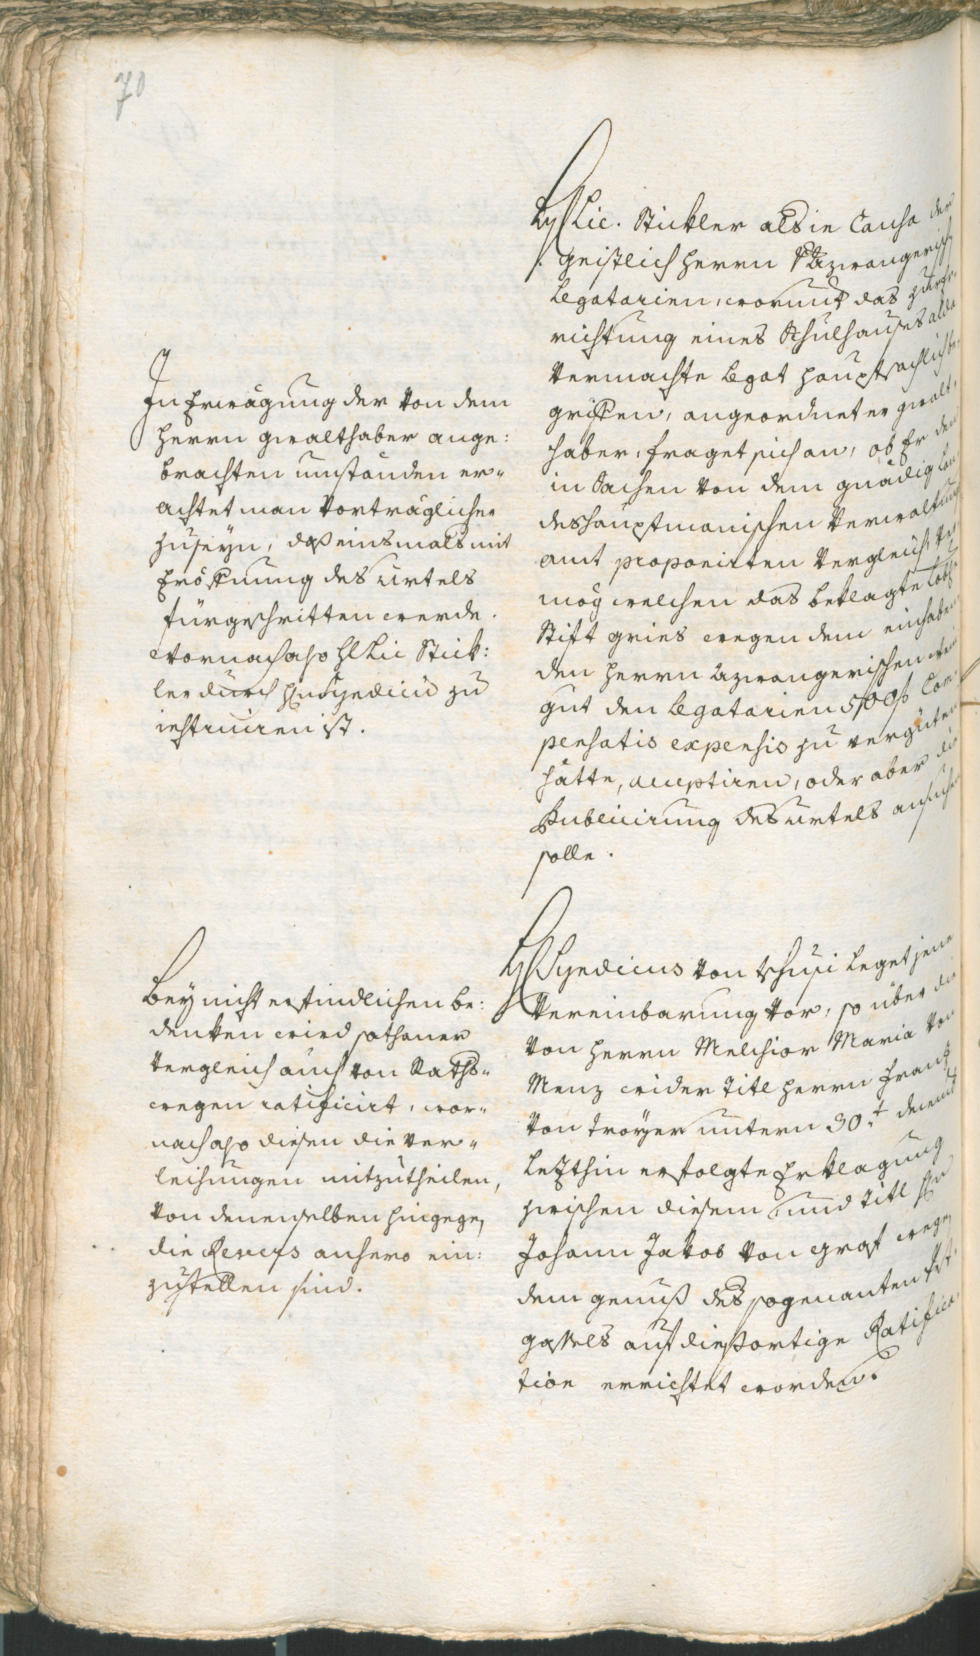 70
H Lic. Stickler als in Causa der
geistlich Herrn Azwangerisch
Legatarien, worunter das zur er-
richtung eines Schulhauses alda
vermachte Legat hauptsächlich be-
griffen, angeordneter gwalt-
haber, fraget sich an, ob Er den
in Sachen von dem gnädig Lan-
deshauptmanischen Verwaltung
amt proponirten Vergleich, ver-
mög welchen das beklagte Löbl
Stift gries wegen dem einhaben-
den Herrn Azwangerischen
gut den Legatarien 5700 f Com-
pensatis expensis zu vergüten
hätte, acceptiren, oder aber die
Publicirung des urtels ansuchen
solle.
In Erwägung der von dem
Herrn gwalthaber ange:
brachten umständen er-
achtet man vorträglicher
zu seyn, daß einsmals mit
Eröffnung des urtels
fürgeschritten werde.
wornach also H Lic Stick:
ler durch Hn Syndicum zu
instruiren ist.
H Syndicus von Tschusi leget jene
Vereinbarung vor, so über die
von Herrn Melchior Maria von
Menz wider Titl Herrn Franz
von Troyer untern 30.t decemb
letzthin erfolgte Erklagung
zwischen diesem und Titl Hn
Johann Jakob von Graf wegen
dem genuß des sogenanten
gassls auf dießortige Ratifica-
tion errichtet worden.
Bey nicht erfindlichen be:
denken wird sothaner
Vergleich auch von Raths-
wegen ratificirt, wor-
nach also diesen die ver-
leihungen mitzutheilen,
von denenselben hingegen
die Revers anhero ein:
zustellen sind.